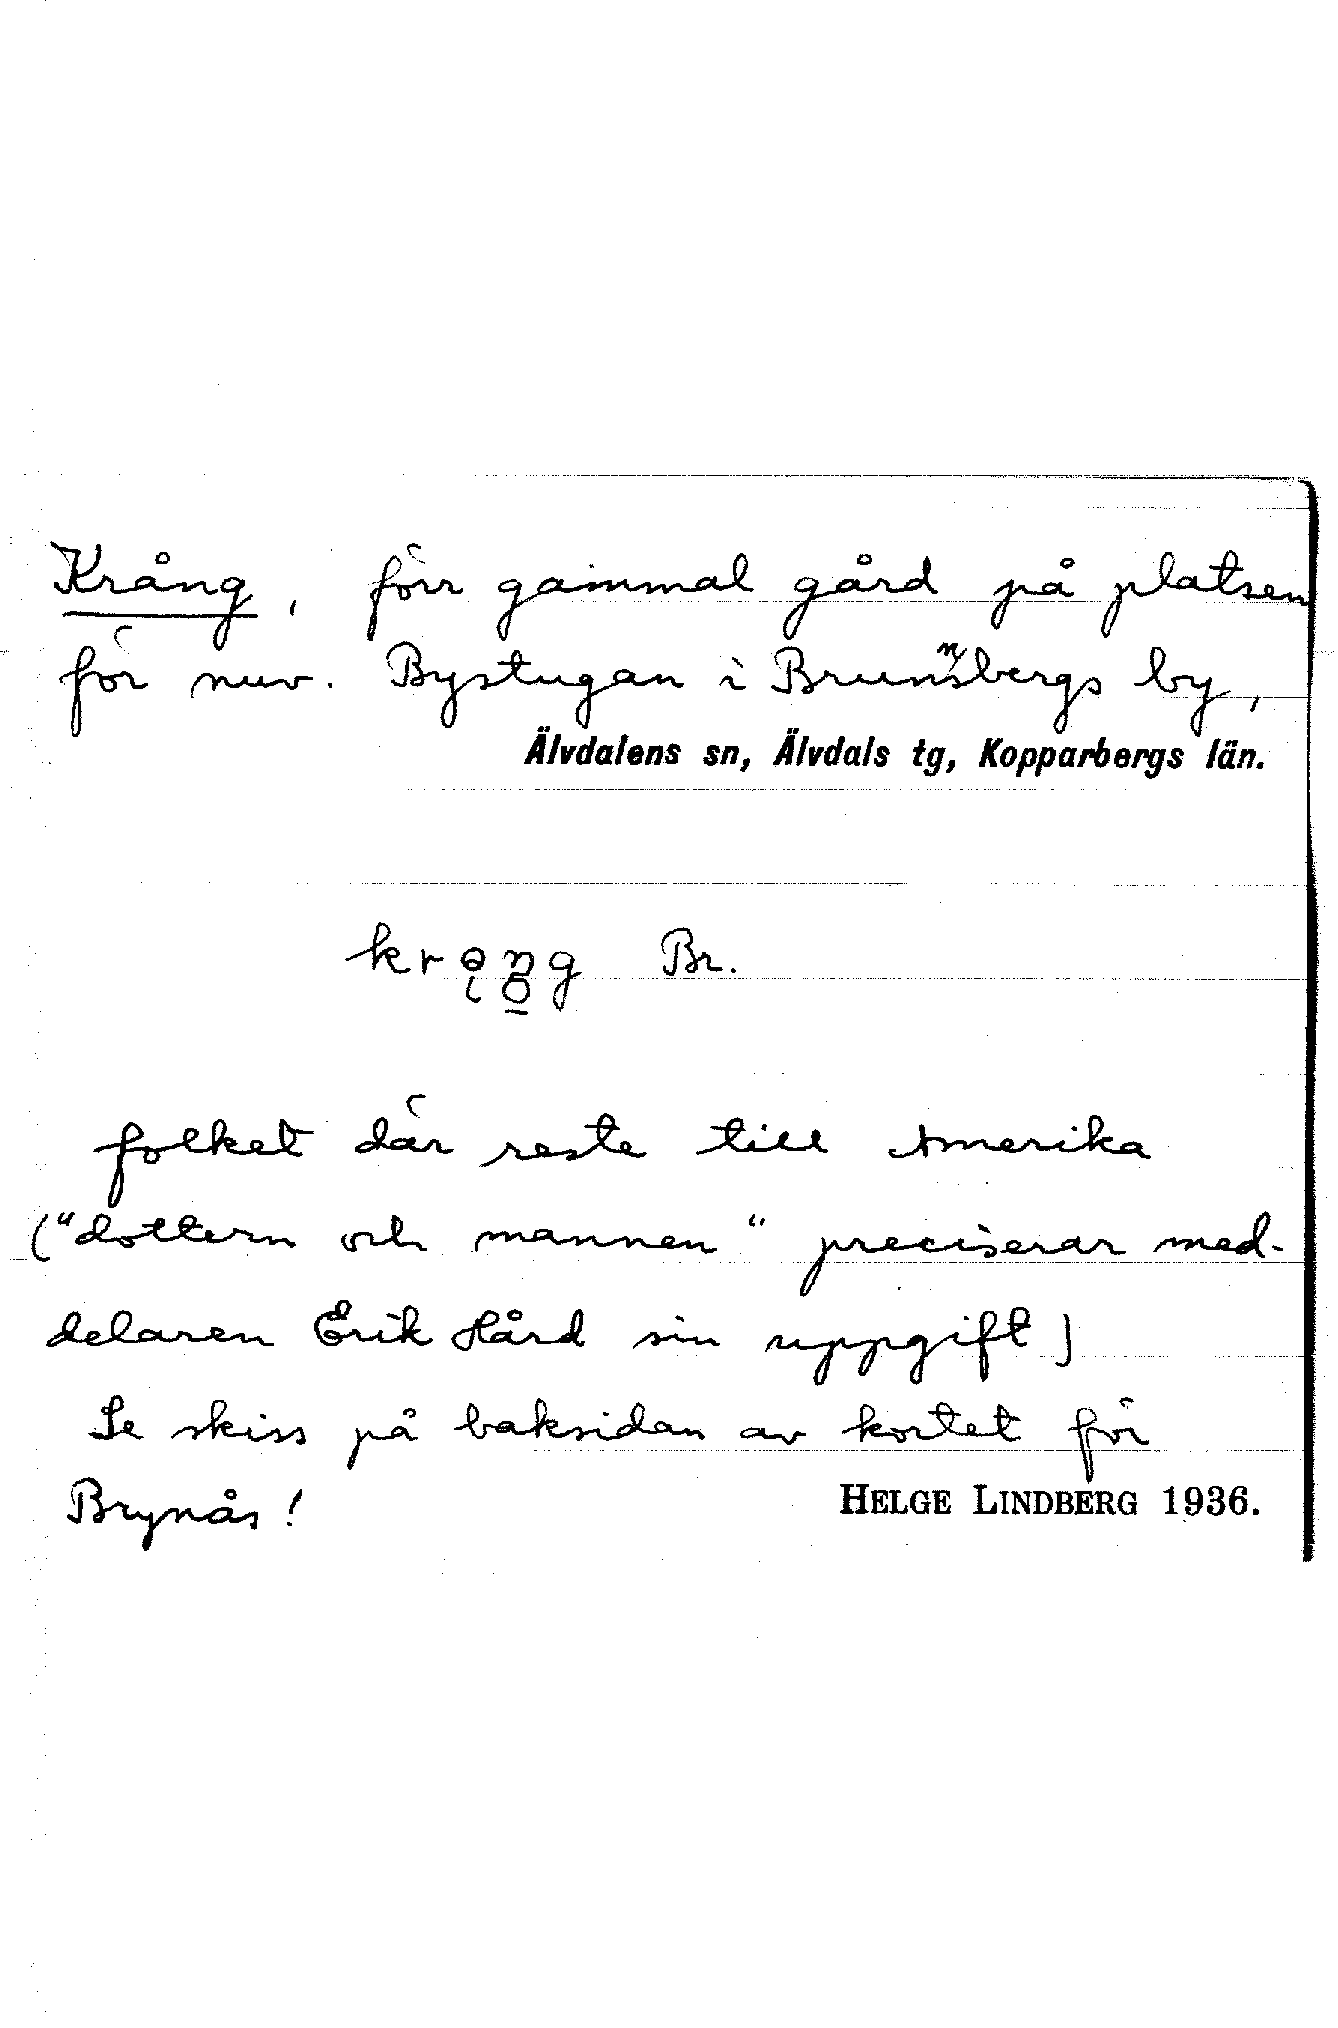 Krång, förr gammal gård på platsen
för nuv. Bystugan i Brunnsbergs by,
Älvdalens sn, Älvdals tg, Kopparbergs län.
Br.
folket där reste till Amerika
("dottern och mannen" preciserar med-
delaren Erik Hård sin uppgift)
Se skiss på baksidan av kortet för
Brynås!
HELGE LINDBERG 1936.